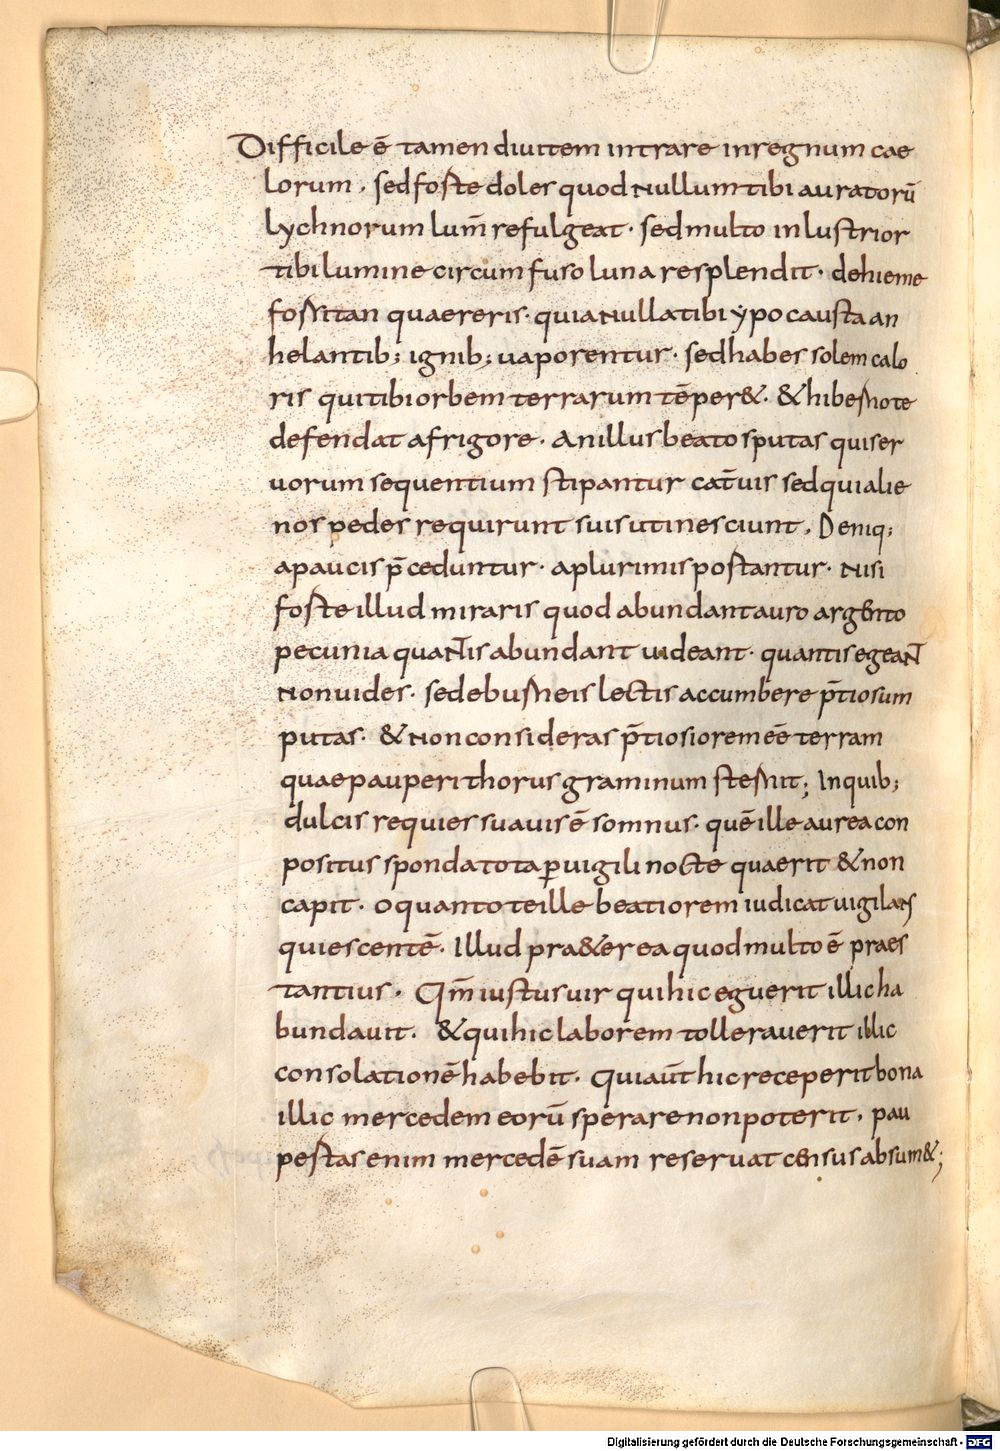 Difficile ē tamen diuitem intrare in regnum cae
lorum, sed foste doles quod nullum tibi auratorū
lychnorum lum̄ refulgeat· sed multo inlustrior
tibi lumine circumfuso luna resplendit· de hieme
forsitan quaereris· quia nulla tibi ypocausta an
helantib; ignib; uaporentur· sed habes solem calo
ris qui tibi orbem terrarum tēper&· & hiberno te
defendat a frigore· An illus beatos putas qui ser
uorum sequentium stipantur cat̄uis sed qui alie
nos pedes requirunt suis uti nesciunt, Deniq;
a paucis p̄ceduntur· a plurimis postantur· nisi
foste illud miraris quod abundant auro argento
pecunia quantis abundant uideant· quantis egeant
non uides· sed eburneis lectis accumbere p̄tiosum
putas· & non consideras p̄tiosiorem eē terram
quae pauperi thorus graminum sternit; In quib;
dulcis requies suauis ē somnus· quē ille aurea con
positus sponda tota ꝑuigili nocte quaerit & non
capit· o quanto te ille beatiorem iudicat uigilans
quiescentē· Illud pra&erea quod multo ē praes
tantius, Qm̄ iustus uir qui hic eguerit illic ha
bundauit. & qui hic laborem tollerauerit illic
consolationē habebit· Qui aūt hic receperit bona
illic mercedem eorū sperare non poterit, pau
pestas enim mercedē suam reseruat census absum&;
Digitalisierung gefördert durch die Deutsche Forschungsgemeinschaft - DFG